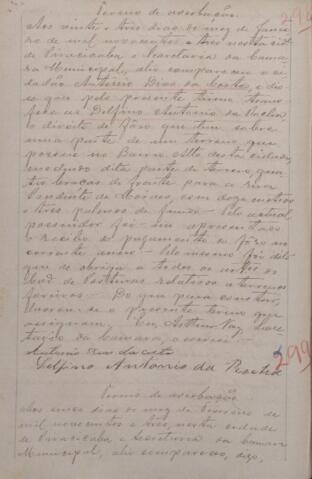 Termo de averbação
294
Aos vinte e tres dias do mez de Janei
ro de mil novecentos e tres nesta cid.
de Piracicaba e Secretaria da Cama
ra Municipal, ahi compareceu o ci
dadão Antonio Dias da Costa, e dis
se que pelo presente termo trans
fere a Delfino Antonio da
o direito de fôro que tem sobre
uma parte de um terreno que
possue no Bairro Alto desta cidade,
medindo dita parte de terreno, qua
tro braças de frente para a rua
Prudente de Moraes, com
e tres palmos de fundo. Pelo actual
possuidor foi me apresentado
o recibo de pagamento do fôro do
corrente anno. Pelo mesmo foi dito
que se obriga a todos os artigos
do Cod. de Posturas relativos a terrenos
foreiros. Do que para constar,
lavrou-se o presente termo que
assignam. Eu, Arthur Vaz, Secre
tario da Camara, o escrevi.
Antonio Dias da Costa
Delfino Antonio da
299
Termo de averbação
Aos onze dias do mez de Fevereiro de
mil novecentos e tres, nesta cidade
de Piracicaba e Secretaria da Camara
Municipal, ahi compareceu, digo,